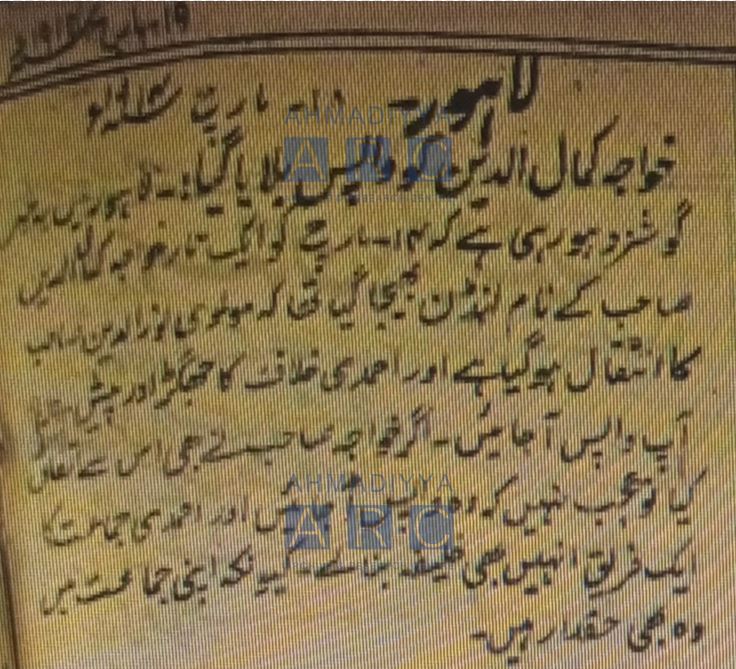 ۱۹- مارچ ۱۹۱۴ء
لاہور۔ ۱۵- مارچ ۱۹۱۴ء
خواجہ کمال الدین کو واپس بلایا گیا:۔ لاہور میں یہ خبر
گوشزد ہو رہی ہے کہ ۱۴- مارچ کو ایک تار خواجہ کمال الدین
صاحب کے نام لنڈن بھیجا گئی تھی کہ مولوی نور الدین صاحب
کا انتقال ہو گیا ہے اور احمدی خلافت کا جھگڑا در پیش
آپ واپس آ جائیں۔ اگر خواجہ صاحب نے بھی اس سے اتفاق
کیا تو تعجب نہیں کہ وہ واپس آ جائیں اور احمدی جماعت کا
ایک فریق انہیں بھی خلیفہ بنا لے۔ کیونکہ اپنی جماعت میں
وہ بھی حقدار ہیں۔
AHMADIYYA
ARC
AHMADIYYA
ARC